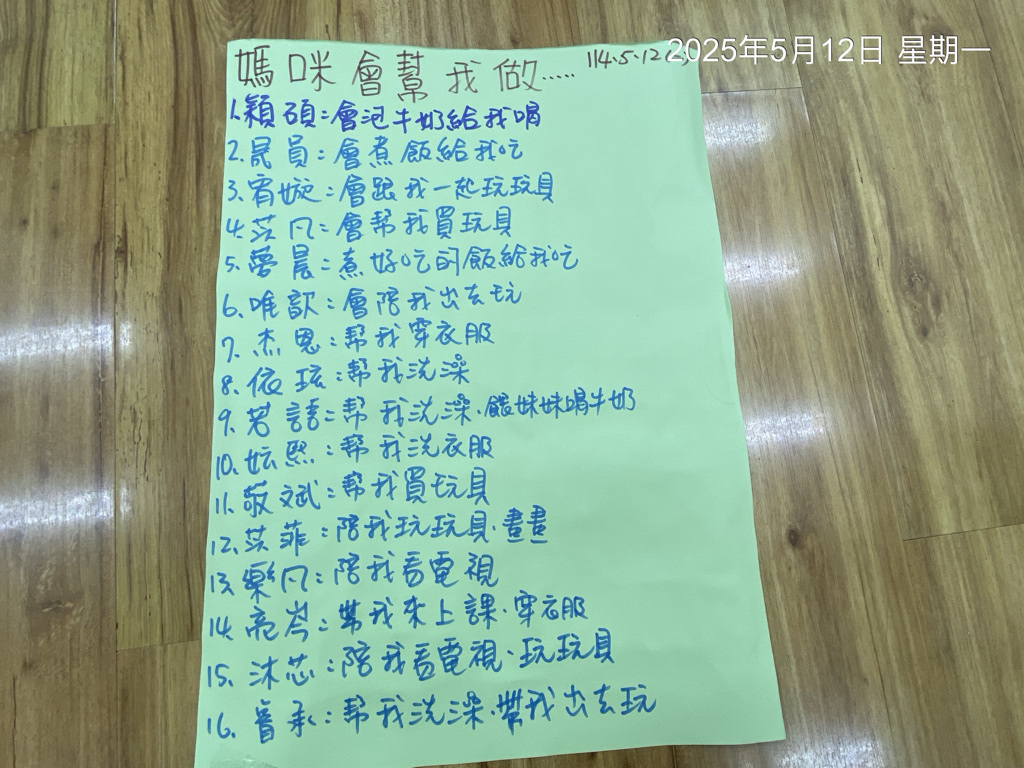 2025年5月12日 星期一
媽咪會幫我做‥‥‥ 114.5.12
1.穎碩:會泡牛奶給我喝
2.晟員:會煮飯給我吃
3.宥嫙:會跟我一起玩玩具
4.苡凡:會幫我買玩具
5.夢晨:煮好吃的飯給我吃
6.唯歆:會陪我出去玩
7.杰恩:幫我穿衣服
8.依玹:幫我洗澡
9.若語:幫我洗澡.餵妹妹喝牛奶
10.妘熙:幫我洗衣服
11.敬斌:幫我買玩具
12.苡菲:陪我玩玩具.畫畫
13.樂凡:陪我看電視
14.亮岑:帶我來上課.穿衣服
15.沐芯:陪我看電視.玩玩具
16.睿承:幫我洗澡.帶我出去玩